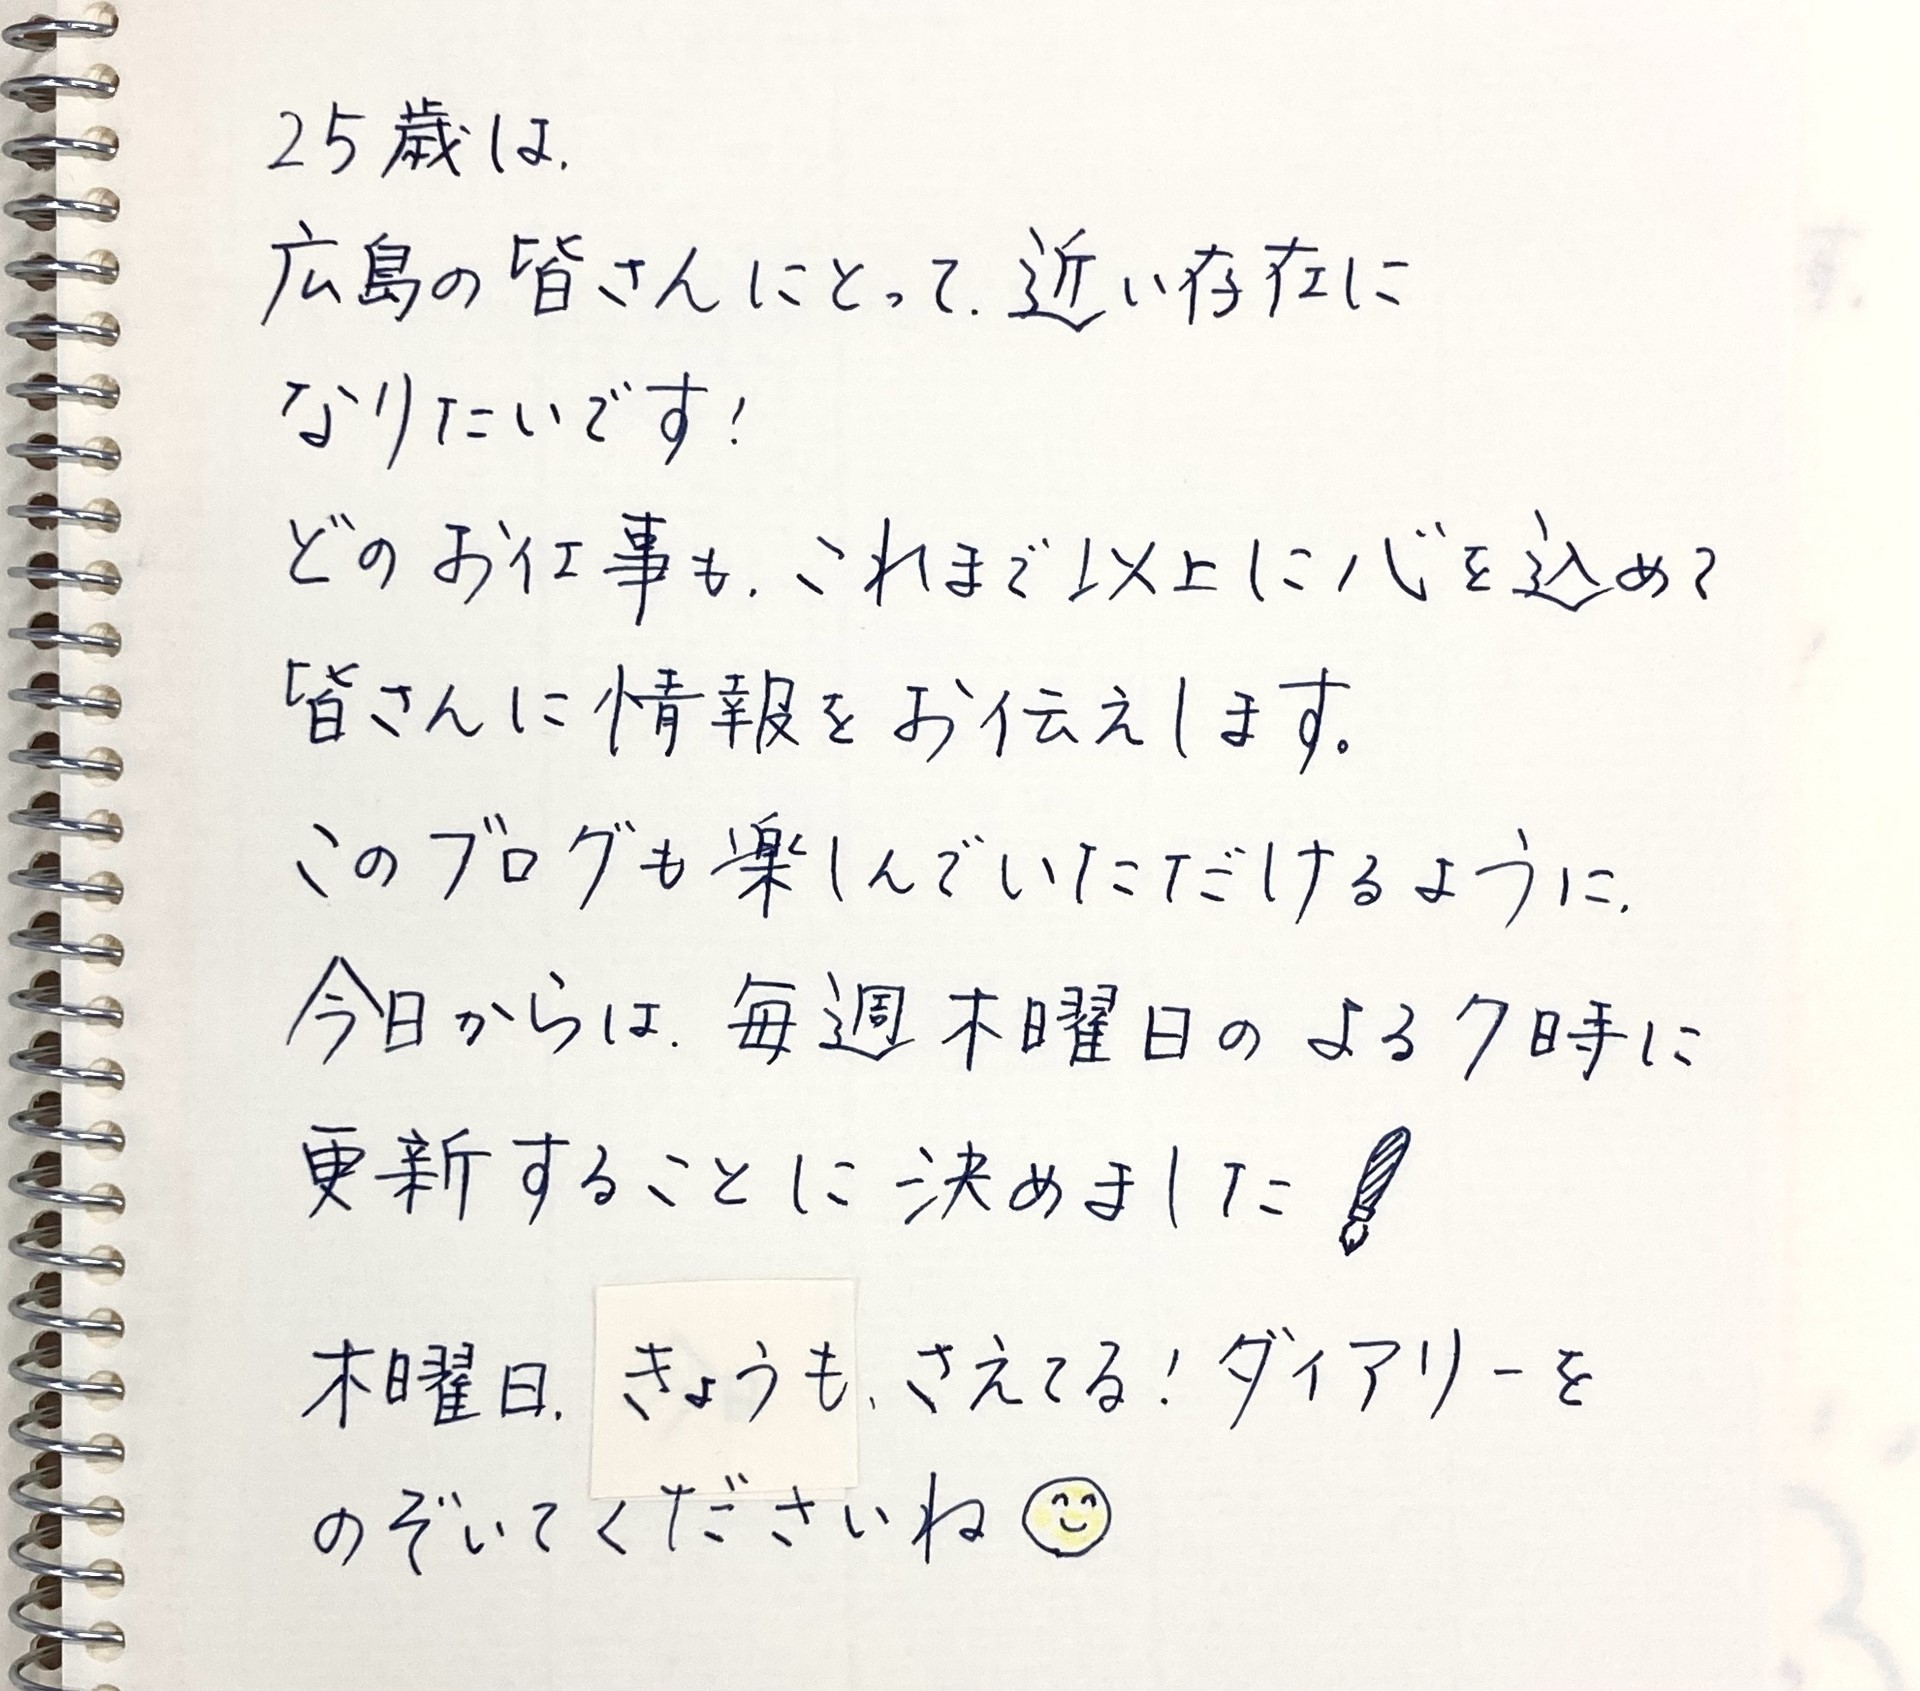 25歳は、
広島の皆さんにとって、近い存在に
なりたいです!
どのお仕事も、これまで以上に心を込めて
皆さんに情報をお伝えします。
このブログも楽しんでいただけるように、
今日からは、毎週木曜日のよる7時に
更新することに決めました
木曜日、きょうも、さえてる!ダイアリーを
のぞいてくださいね